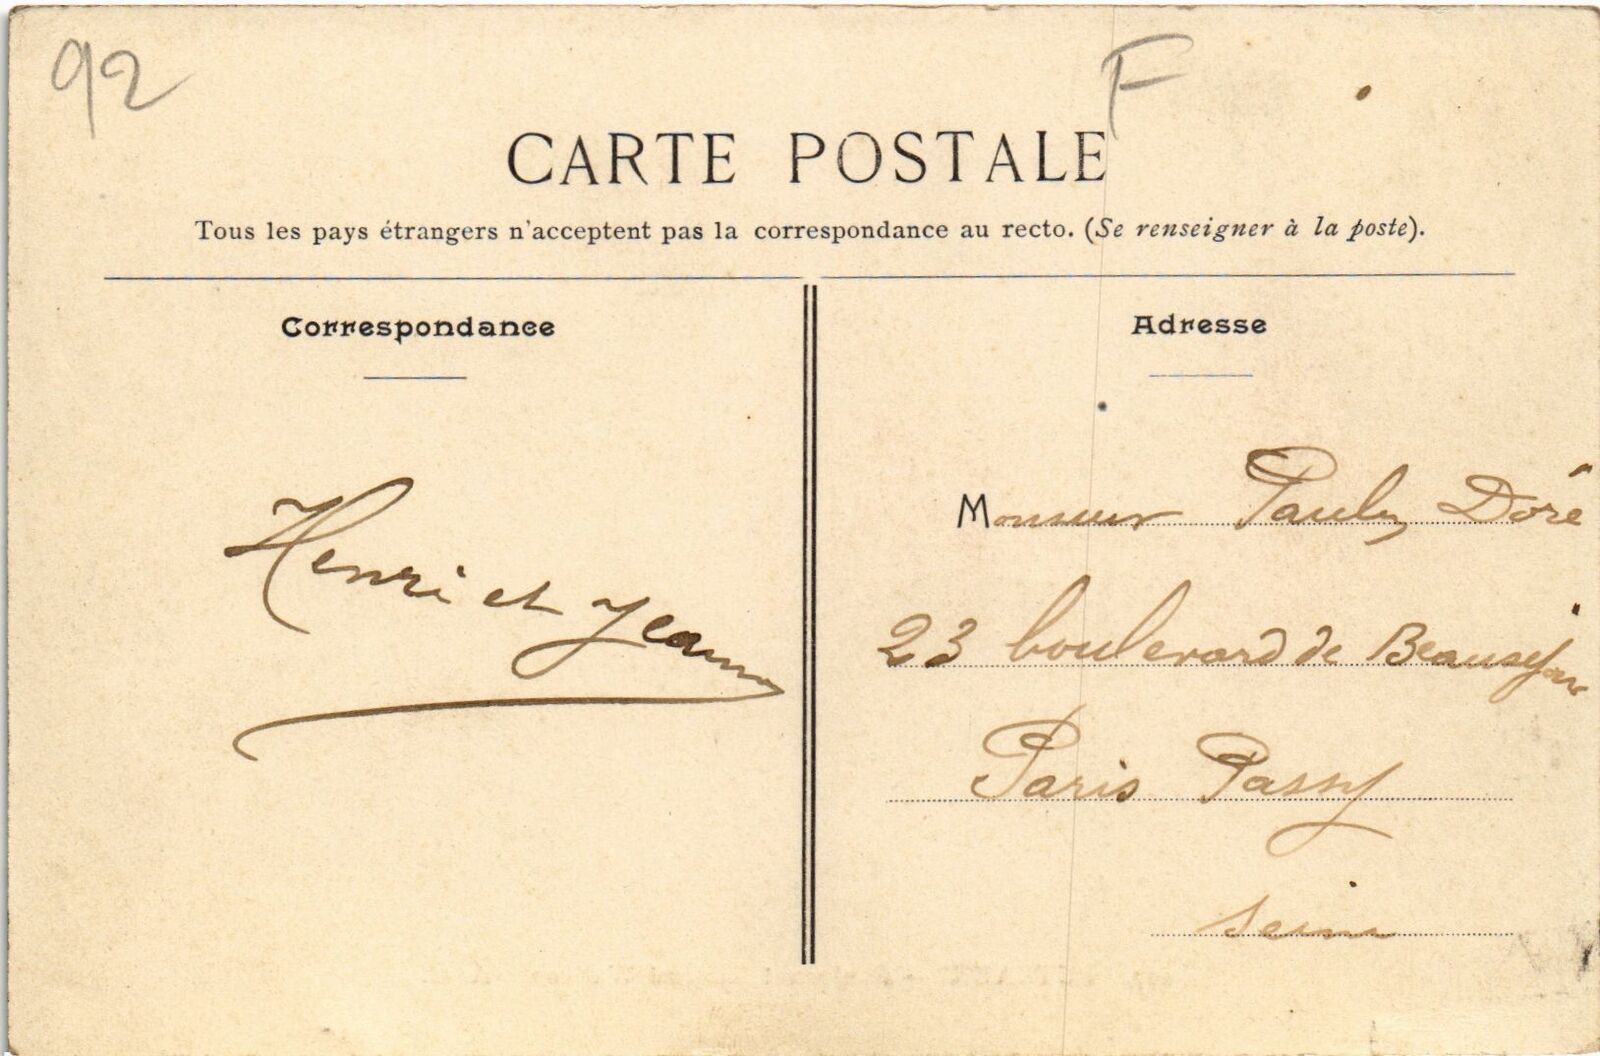 92
F
CARTE POSTALE
Tous les pays étrangers n'acceptent pas la correspondance au recto. (Se renseigner à la poste).
Correspondance
Henri et Jeanne
Adresse
Monsieur Doré
23 boulevard de Beauséjour
Paris Passy
Seine